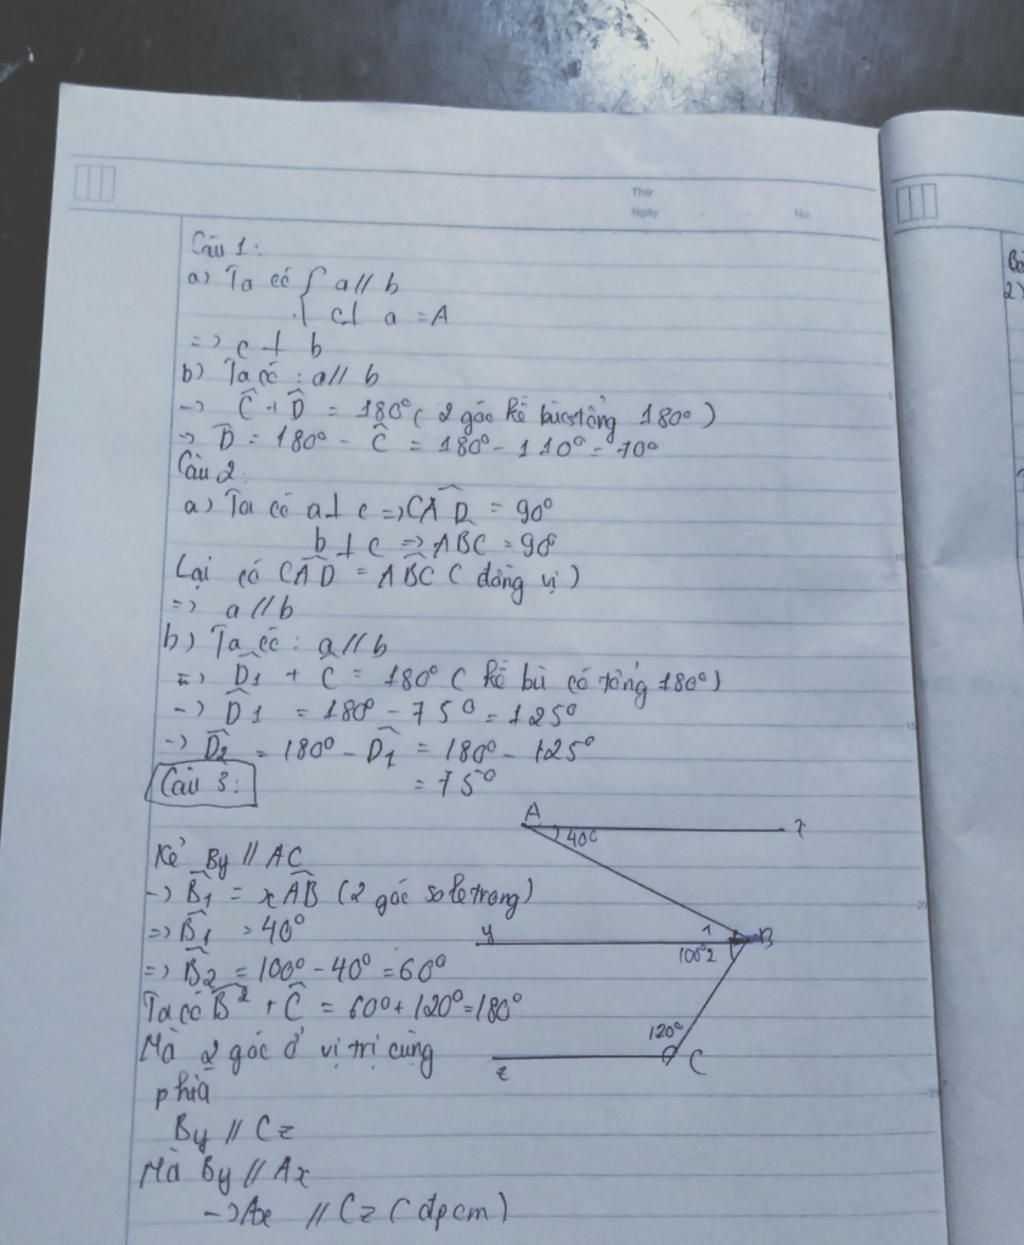 Thứ
Ngày
No
Câu 1:
a) Ta có { a // b
c ⊥ a = A
=> c ⊥ b
b) Ta có : a // b
-> Ĉ + D̂ = 180° ( 2 góc kề bù tổng 180° )
=> D̂ = 180° - Ĉ = 180° - 110° = 70°
Câu 2
a) Ta có a ⊥ c => CAD = 90°
b ⊥ c => ABC = 90°
Lại có CAD = ABC ( đồng vị )
=> a // b
b) Ta có : a // b
=> D̂1 + Ĉ = 180° ( kề bù có tổng 180° )
-> D̂1 = 180° - 75° = 125°
-> D̂2 = 180° - D̂1 = 180° - 125°
= 75°
Câu 3:
A
40°
Kẻ By // AC
-> B̂1 = xAB ( 2 góc so le trong )
=> B̂1 = 40°
y 1 B
100° 2
=> B̂2 = 100° - 40° = 60°
Ta có B̂2 + Ĉ = 60° + 120° = 180°
120°
Mà 2 góc ở vị trí cùng
z C
phía
By // Cz
Mà By // Ax
-> Ax // Cz ( đpcm )
2)